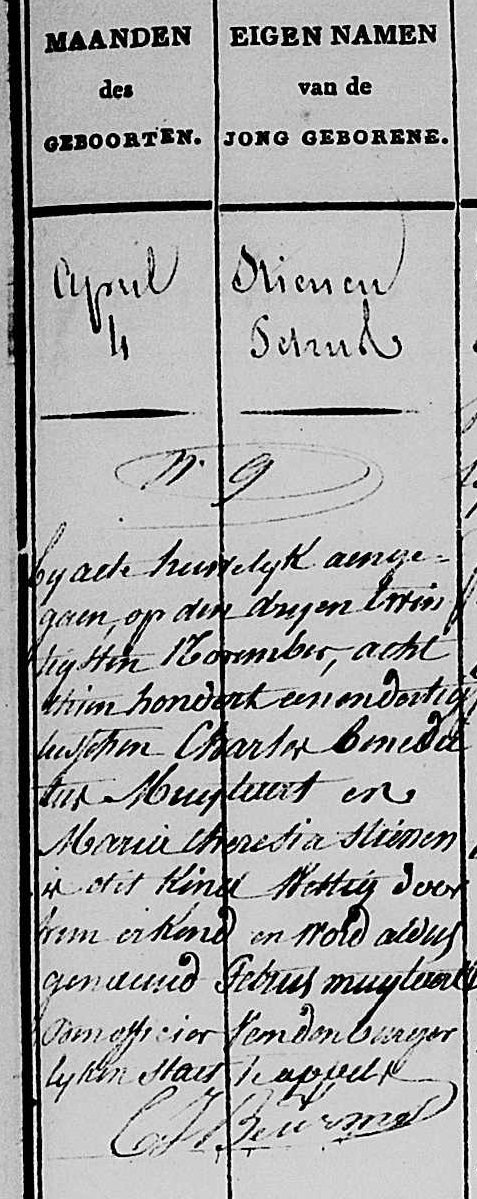 MAANDEN
des
GEBOORTEN.
EIGEN NAMEN
van de
JONG GEBORENE.
April
4
Stienen
Petrus
N. 9
by acte huwelyk aenge-
gaen, op den dryen twin
tigsten November, acht
thien hondert eenendertig
tusschen Charles Benedic
tus Muylaert en
Maria theresia Stienen
is dit Kind Wettig door
hun erkend en word aldus
genaemd Petrus muylaert
Den officier van den burger
lyken Staet te appels